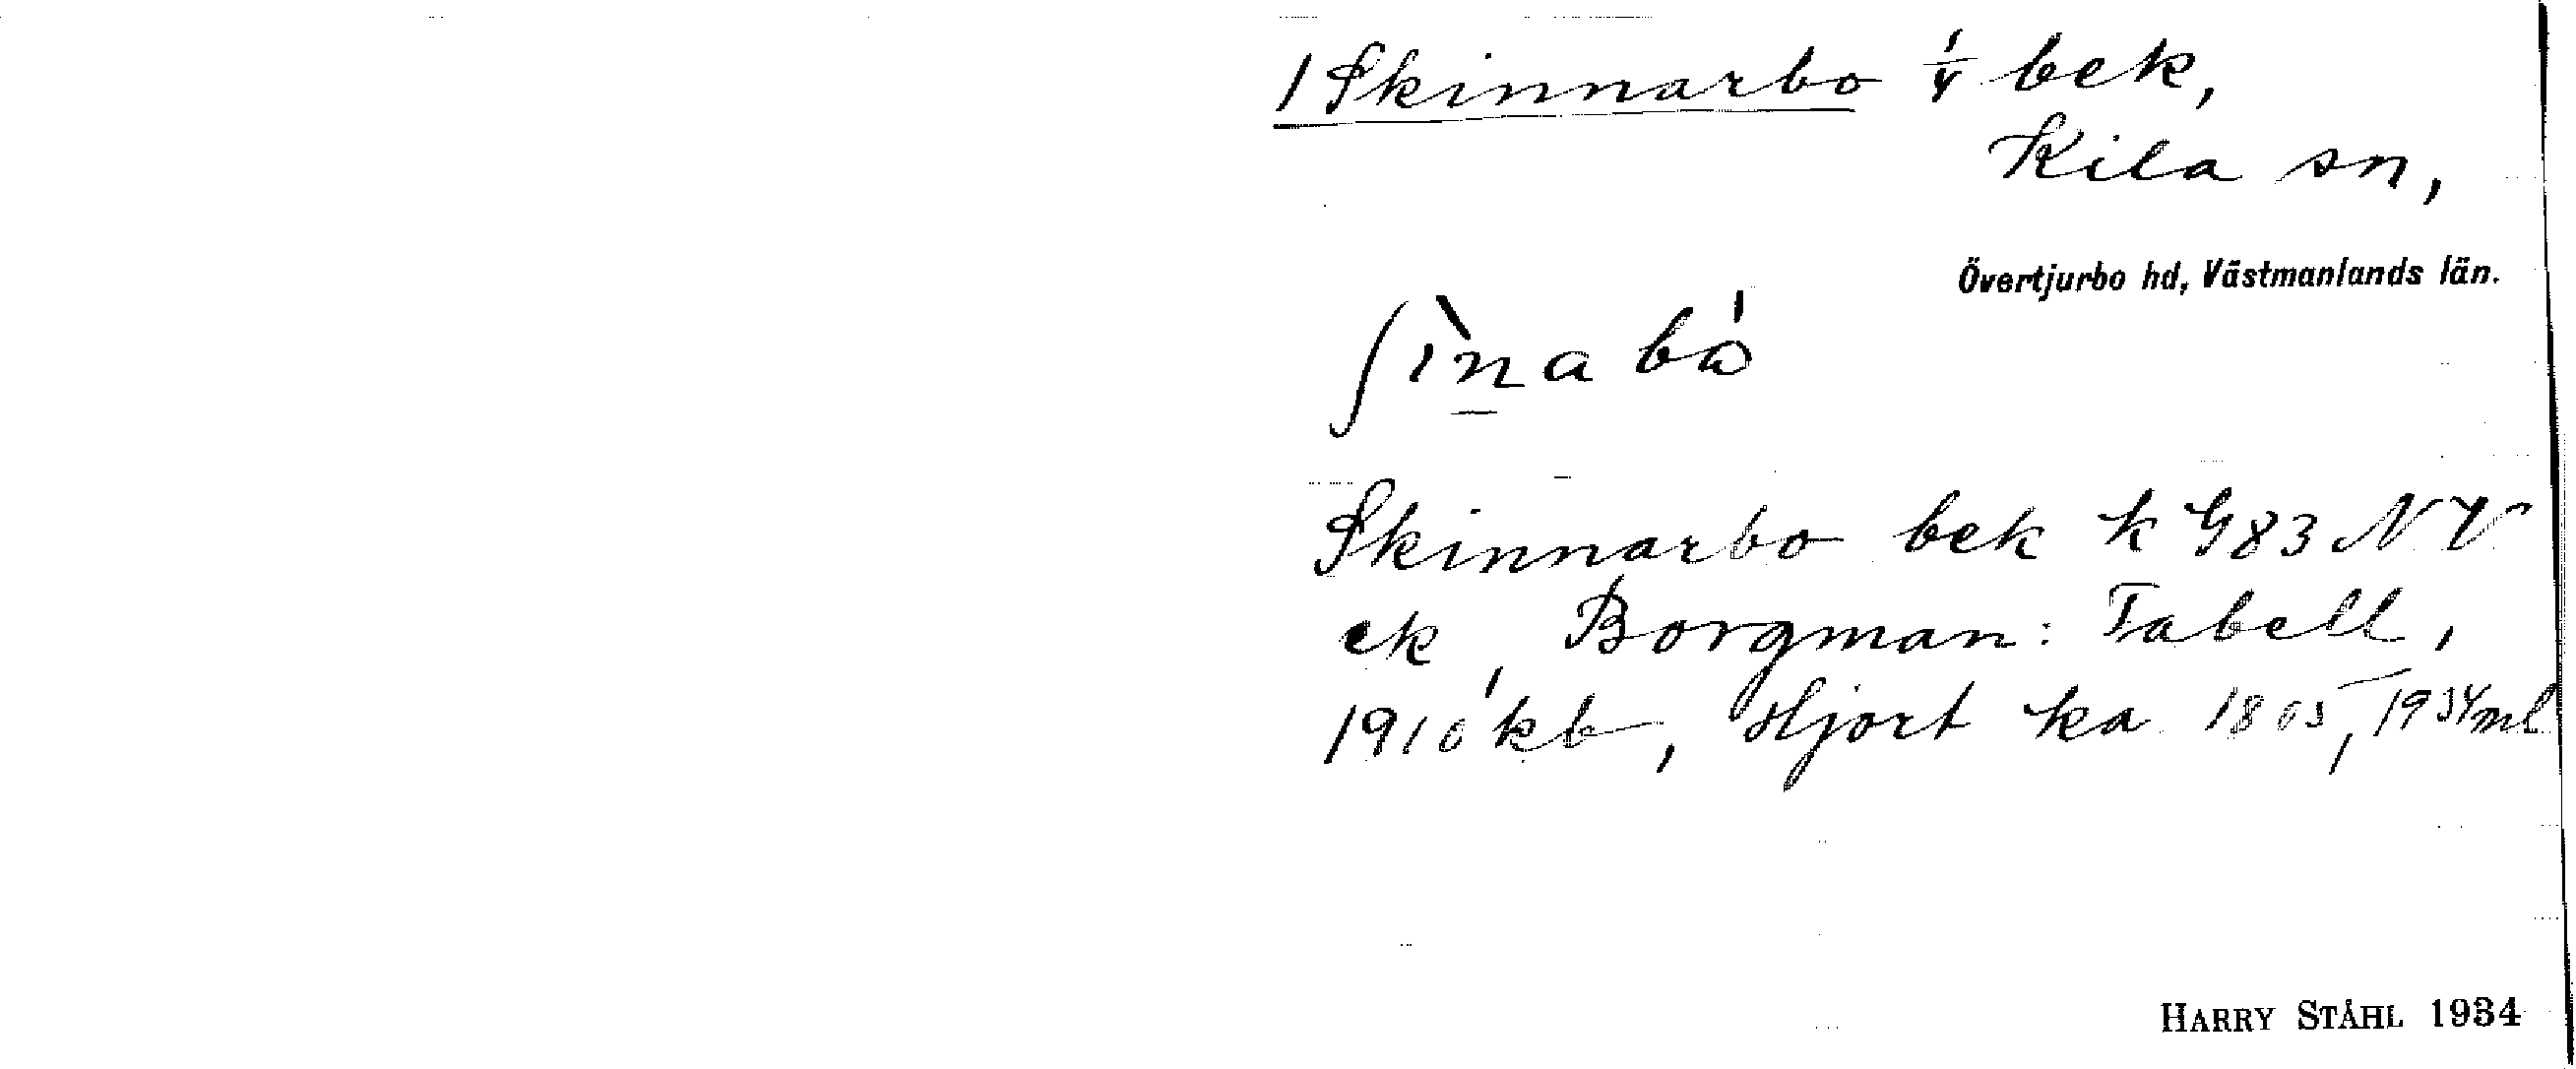 1 Skinnarbo 1/4 bek,
Kila sn,
Övertjurbo hd, Västmanlands län.
ʃìnabó
Skinnarbo bek k G83 NV
ek, Borgman: Tabell,
1910 kb, Hjort ka 1805, 1934 ml
HARRY STÅHL 1934